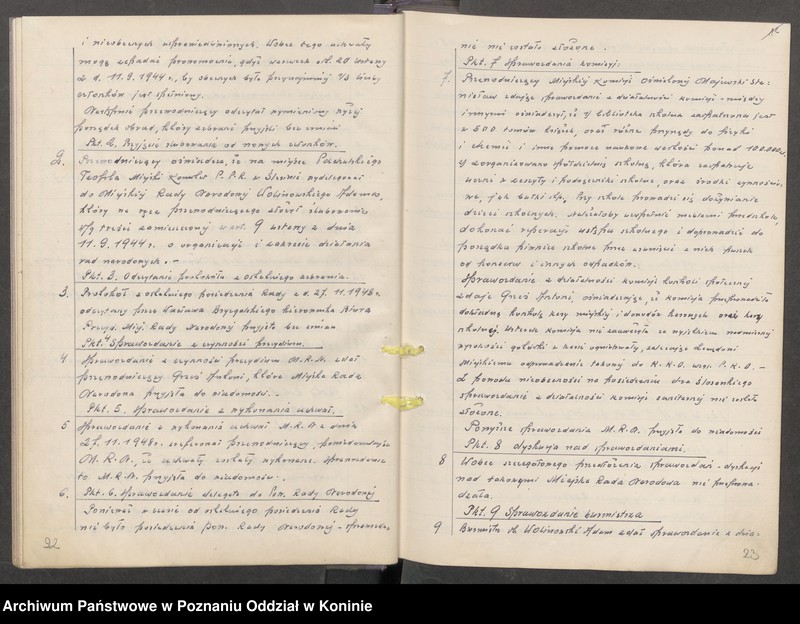 i nieobecnych usprawiedliwionych. Wobec tego uchwały
mogą zapadać prawomocnie, gdyż warunek art. 20 ustawy
z d. 11.9.1944 r., by obecnych było przynajmniej 1/3 liczby
członków jest spełniony.
Następnie przewodniczący odczytał wymieniony wyżej
porządek obrad, który zebrani przyjęli bez zmian
Pkt. 2. Przyjęcie ślubowania od nowych członków.
2. Przewodniczący oświadcza, że na miejsce
Teofila Miejski Komitet P.P.R. w wydelegował
do Miejskiej Rady Narodowej Wolinowskiego Adama,
który na ręce przewodniczącego złożył ślubowanie
wg treści zamieszczonej w art. 9 ustawy z dnia
11.9.1944 r. o organizacji i zakresie działania
rad narodowych. -
Pkt. 3. Odczytanie protokołu z ostatniego zebrania.
3. Protokół z ostatniego posiedzenia Rady z d. 27.11.1948 r.
odczytany przez Kierownika Biura
Prezyd. Miej. Rady Narodowej przyjęto bez zmian
Pkt. 4 Sprawozdanie z czynności prezydium.
4 Sprawozdanie z czynności prezydium M.R.N. zdał
przewodniczący Antoni, które Miejska Rada
Narodowa przyjęła do wiadomości. -
Pkt. 5. Sprawozdanie z wykonania uchwał.
5 Sprawozdanie z wykonania uchwał M.R.N z dnia
27.11.1948 r. przewodniczący
M.R.N., że uchwały zostały wykonane. Sprawozdanie
to M.R.N. przyjęła do wiadomości.
6. Pkt. 6. Sprawozdanie delegata do Pow. Rady Narodowej
Ponieważ w czasie od ostatniego posiedzenia Rady
nie było posiedzenia Pow. Rady Narodowej - sprawozda-
22
nie nie zostało złożone.
Pkt. 7 Sprawozdania komisji:
7. Przewodniczący Miejskiej Komisji Oświatowej Majewski Sta-
nisław zdając sprawozdanie z działalności komisji - między
innymi oświadczył, że 1/ biblioteka szkolna zaopatrzona jest
w 500 tomów książek, oraz różne przyrządy do fizyki
i chemii i inne pomoce naukowe wartości ponad 100.000 zł,
2/ zorganizowano spółdzielnię szkolną, która zaopatruje
uczni w zeszyty i podręczniki szkolne, oraz środki żywnościo-
we, jak bułki itp. Przy szkole prowadzi się dożywianie
dzieci szkolnych, należałoby uzupełnić meblami przedszkole,
dokonać reperacji ustępu szkolnego i doprowadzić do
porządku piwnice szkolne przez usunięcie z nich
od pomidorów i innych odpadków.
Sprawozdanie z działalności komisji kontroli społecznej
zdaje Antoni, oświadczając, iż komisja przeprowadziła
dokładną kontrolę kasy miejskiej i dowodów kasowych oraz kasy
szkolnej. Usterek komisja nie zauważyła za wyjątkiem nadmiernej
wysokości gotówki w kasie
Miejskiemu odprowadzenie takowej do K.K.O. wzgl. P.K.O. -
Z powodu nieobecności na posiedzeniu dra
sprawozdanie z działalności komisji sanitarnej nie zostało
złożone.
Powyższe sprawozdania M.R.N. przyjęła do wiadomości
Pkt. 8 dyskusja nad sprawozdaniami.
8 Wobec szczegółowego przedłożenia sprawozdań - dyskusji
nad takowymi Miejska Rada Narodowa nie przeprowa-
dzała.
Pkt. 9 Sprawozdanie burmistrza
9 Burmistrz Wolinowski Adam zdał sprawozdanie z dzia-
23
Archiwum Państwowe w Poznaniu Oddział w Koninie